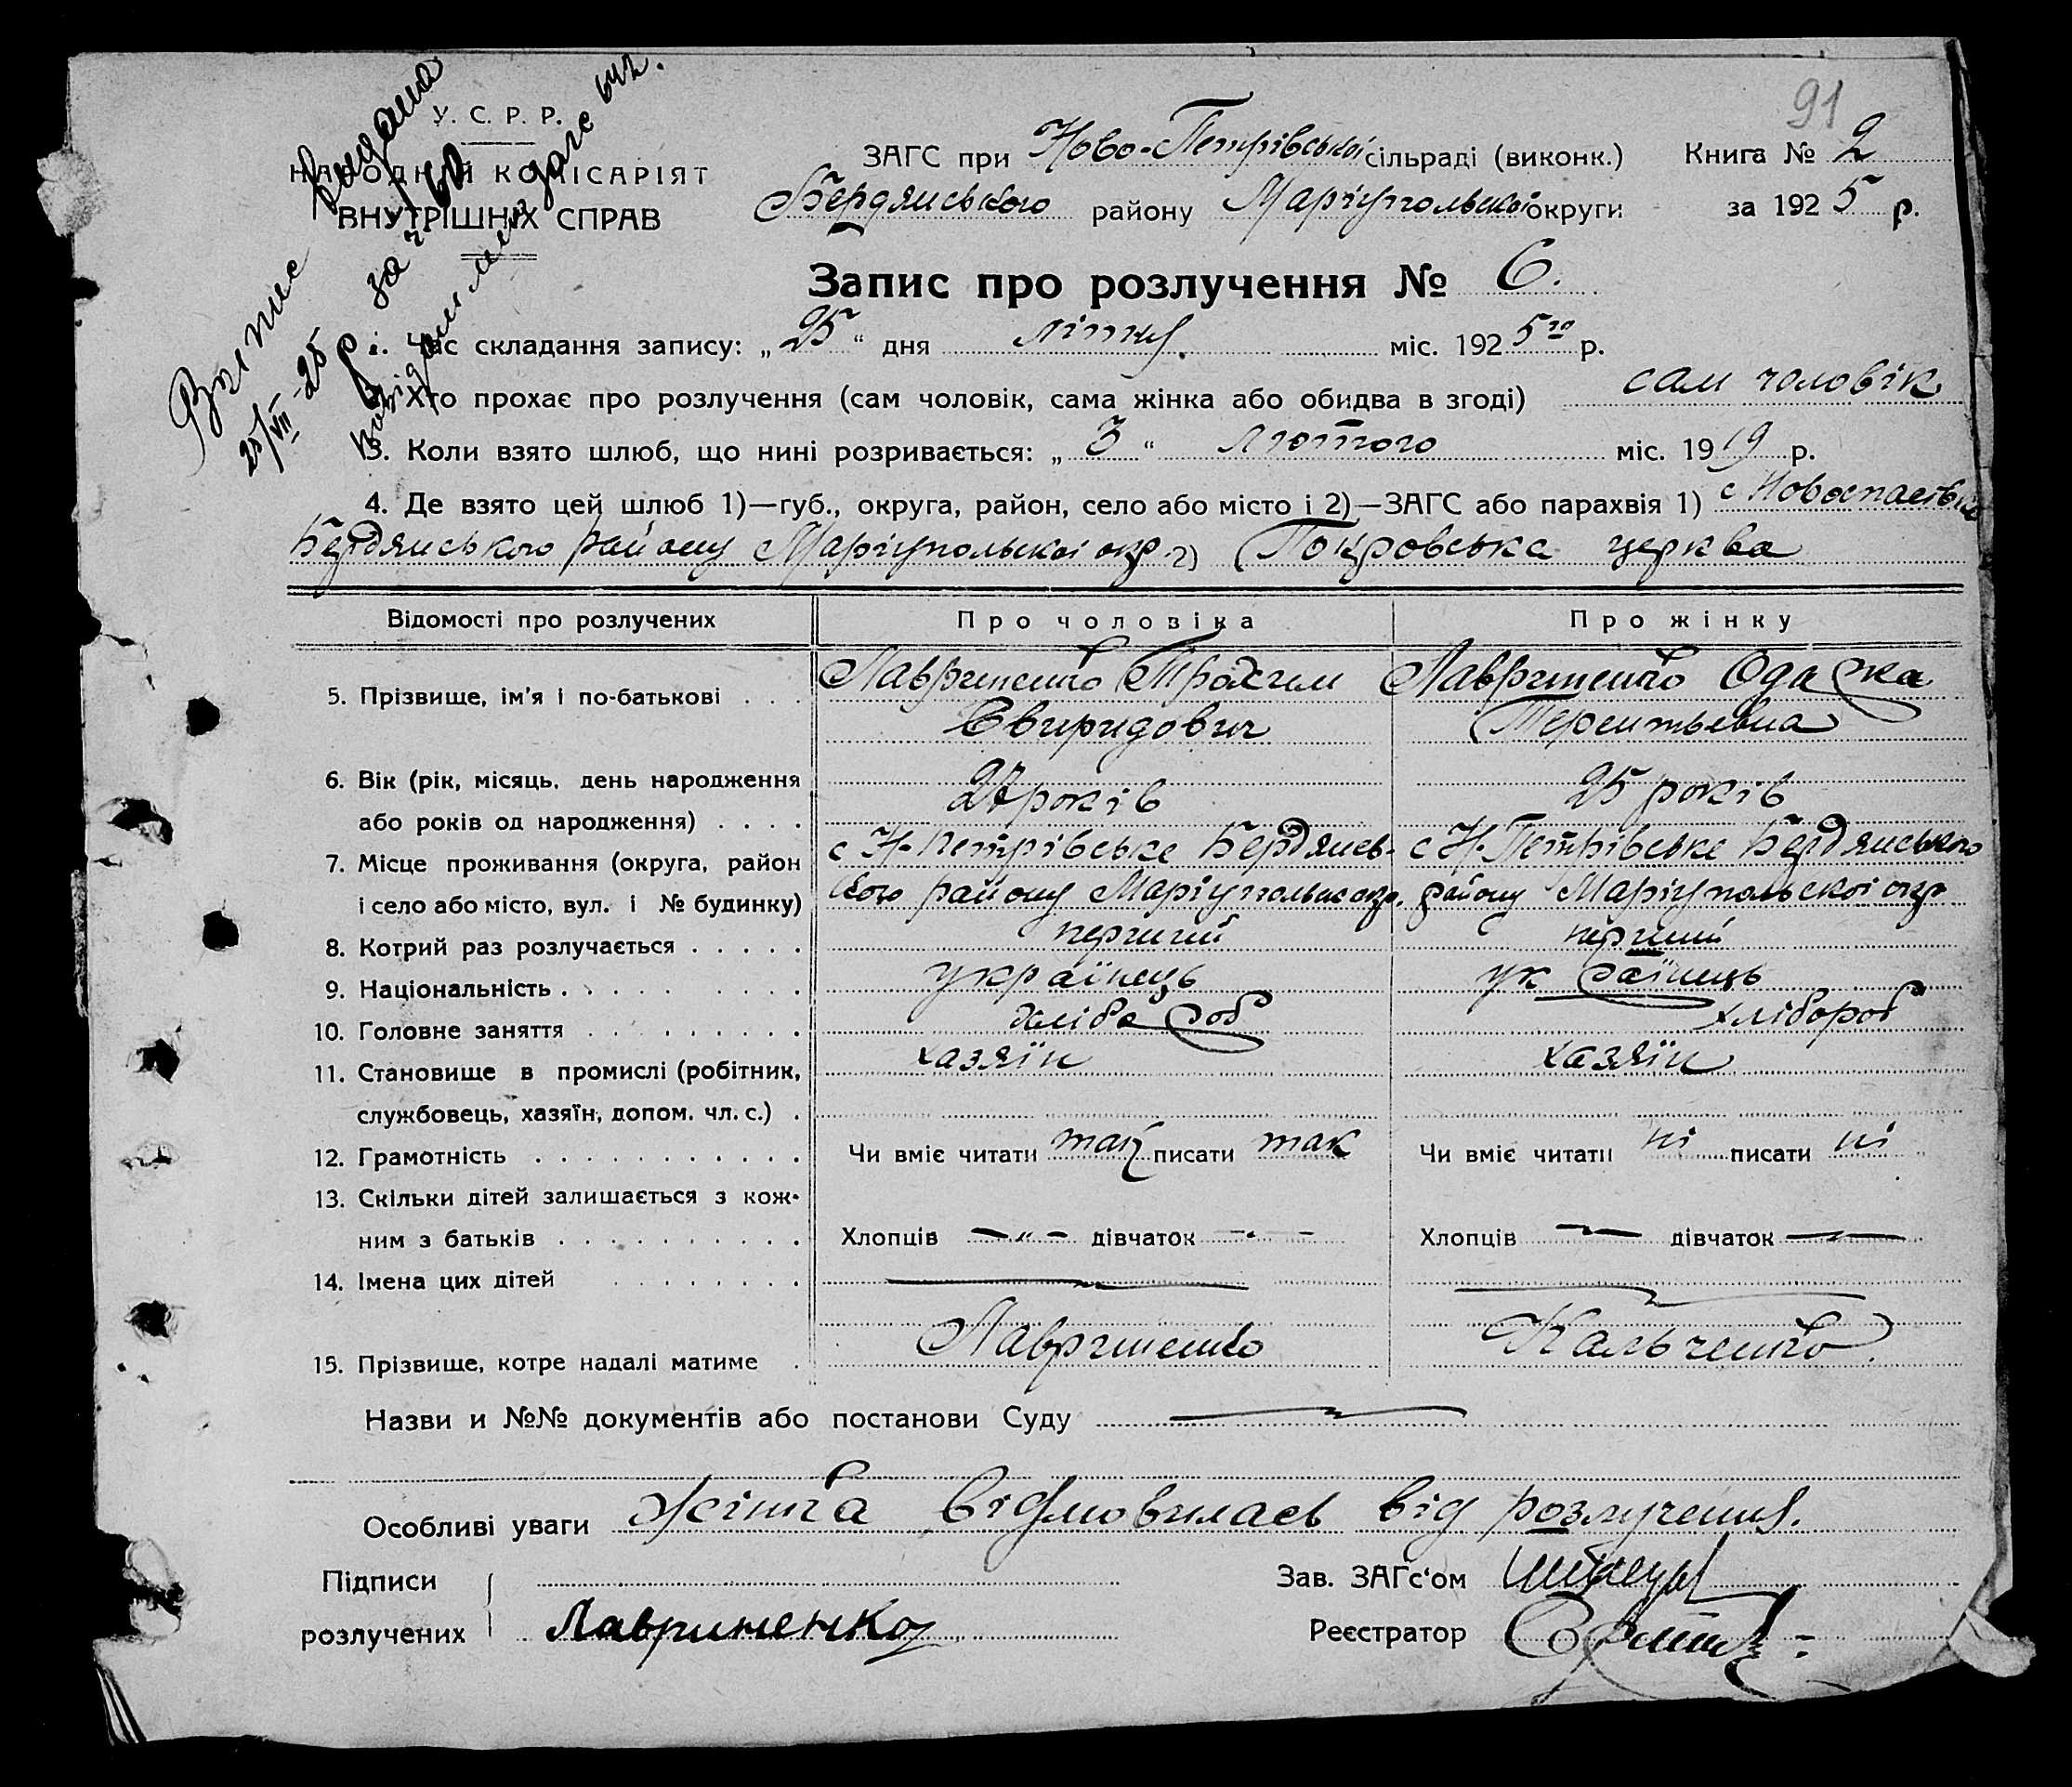 91
У. С. Р. Р.
НАРОДНІЙ КОМІСАРІЯТ
ВНУТРІШНІХ СПРАВ
Выпис видана
25/VII-25 р. за №
ЗАГС при Ново-Петрівській сільраді (виконк.) Книга № 2
Бердянського району Маріупольської округи за 1925 р.
Запис про розлучення № 6.
1. Час складання запису: „25“ дня липня міс. 1925го р.
2. Хто прохає про розлучення (сам чоловік, сама жінка або обидва в згоді) сам чоловік
3. Коли взято шлюб, що нині розривається: „3“ лютого міс. 1919 р.
4. Де взято цей шлюб 1)—губ., округа, район, село або місто і 2)—ЗАГС або парахвія 1) с Новоспасівка
Бердянського району Маріупольскої окр 2) Покровська церква
Відомості про розлучених Про чоловіка Про жінку
5. Прізвище, ім'я і по-батькові . . . Лавриненко Трохим Лавриненко Одарка
Свиридович Терентьевна
6. Вік (рік, місяць, день народження 27 років 25 років
або років од народження) . . . .
7. Місце проживання (округа, район с Н-Петрівське Бердянсь- с Н-Петрівське Бердянського
і село або місто, вул. і № будинку) кого району Маріупольск окр. району Маріупольскої окр
8. Котрий раз розлучається . . . . . перший перший
9. Національність . . . . . . . . українець українець
10. Головне заняття . . . . . . . . хлібороб хлібороб
11. Становище в промислі (робітник, хазяїн хазяїн
службовець, хазяїн, допом. чл. с.) .
12. Грамотність . . . . . . . . . . . Чи вміє читати так писати так Чи вміє читати ні писати ні
13. Скільки дітей залишається з кож-
ним з батьків . . . . . . . . . . Хлопців — „ — дівчаток — „ — Хлопців — дівчаток —
14. Імена цих дітей . . . . . . . . — —
15. Прізвище, котре надалі матиме . Лавриненко Кальченко
Назви и №№ документів або постанови Суду —
Особливі уваги Жінка відмовилась від розлучення.
Підписи Зав. ЗАГс'ом
розлучених Лавриненко Реєстратор